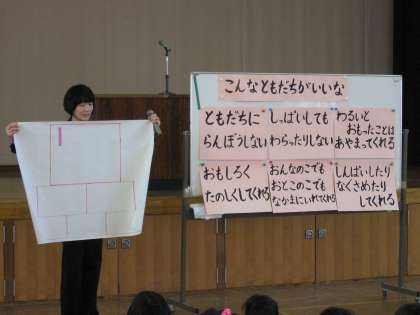 こんなともだちがいいな
ともだちに
らんぼうしない
しっぱいしても
わらったりしない
わるいと
おもったことは
あやまってくれる
おもしろく
たのしくしてくれる
おんなのこでも
おとこのこでも
なかまにいれてくれる
しんぱいしたり
なぐさめたり
してくれる